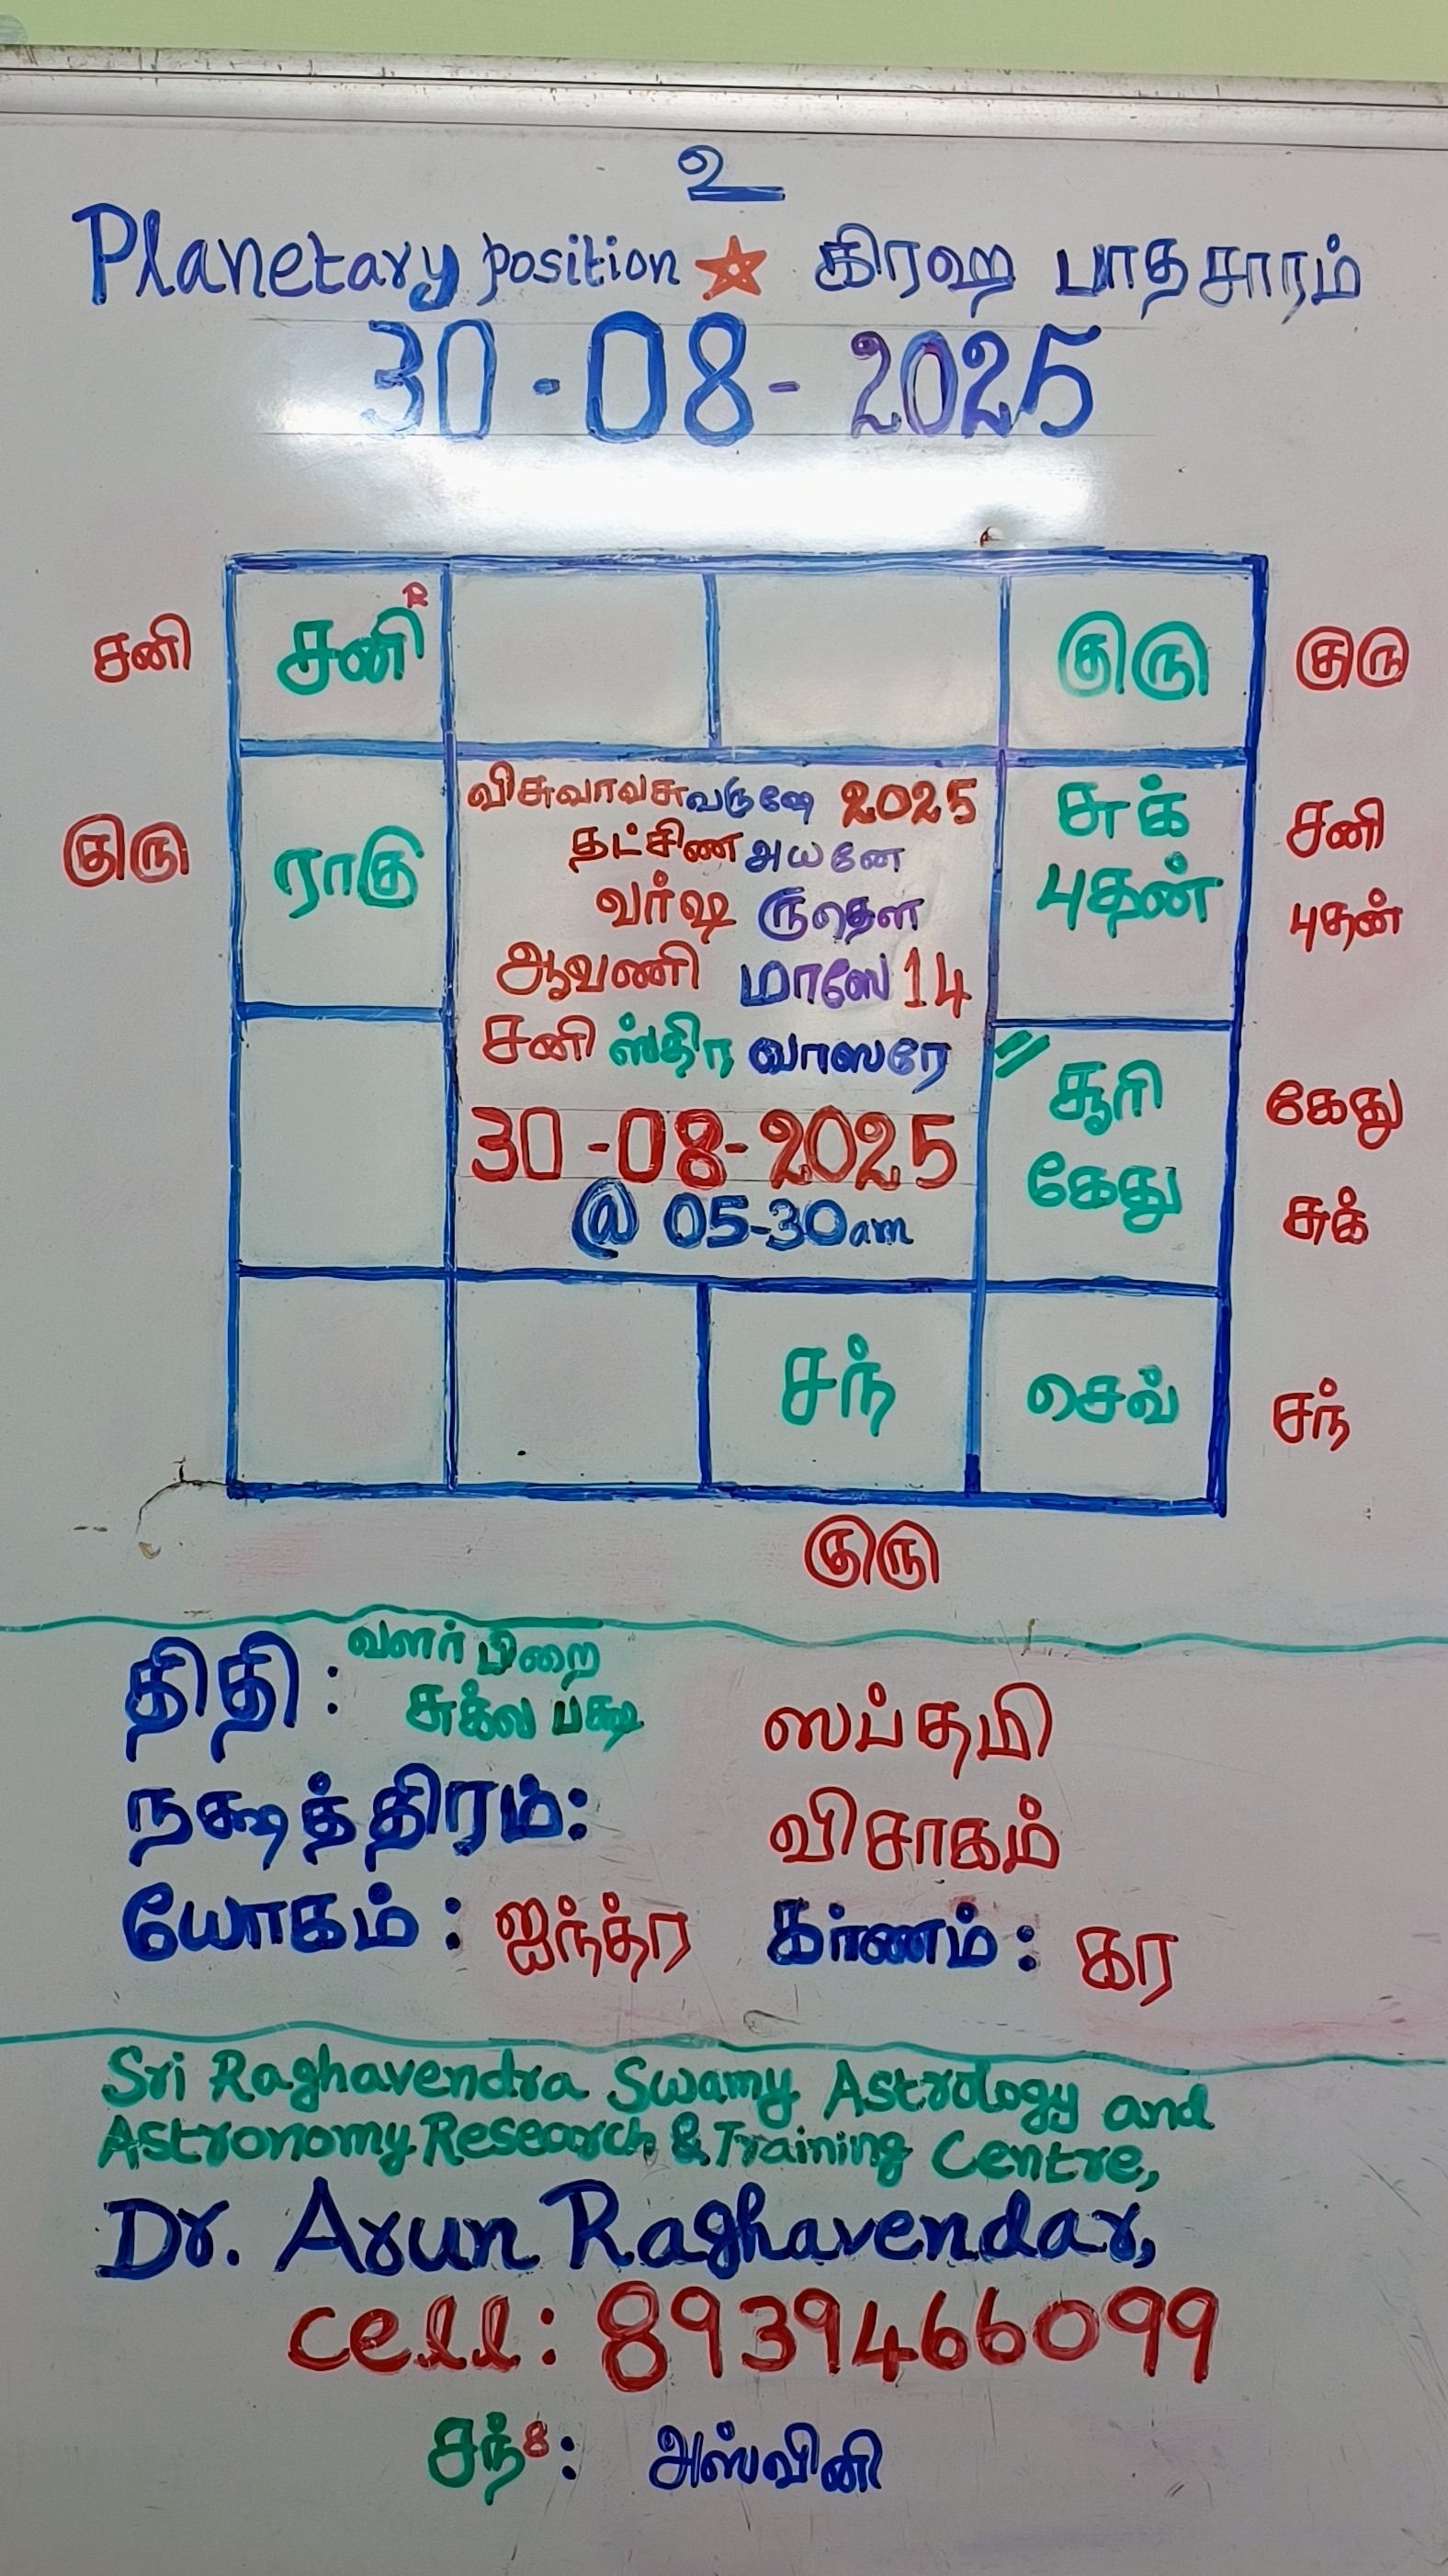 உ
Planetary position ☆ கிரஹ பாதசாரம்
30-08-2025
சனி சனி R குரு குரு
குரு ராகு சுக் புதன் சனி புதன்
விசுவாவசுவருஷே 2025
தட்சிண அயனே
வர்ஷ ருதௌ
ஆவணி மாஸே 14
சனி ஸ்திர வாஸரே
30-08-2025
@ 05-30am
சூரி கேது கேது சுக்
சந் செவ் சந்
குரு
திதி: வளர்பிறை சுக்ல பக்ஷ ஸப்தமி
நக்ஷத்திரம்: விசாகம்
யோகம்: ஐந்த்ர கர்ணம்: கர
Sri Raghavendra Swamy Astrology and
Astronomy Research & Training Centre,
Dr. Arun Raghavendar,
cell: 8939466099
சந் 8: அஸ்வினி